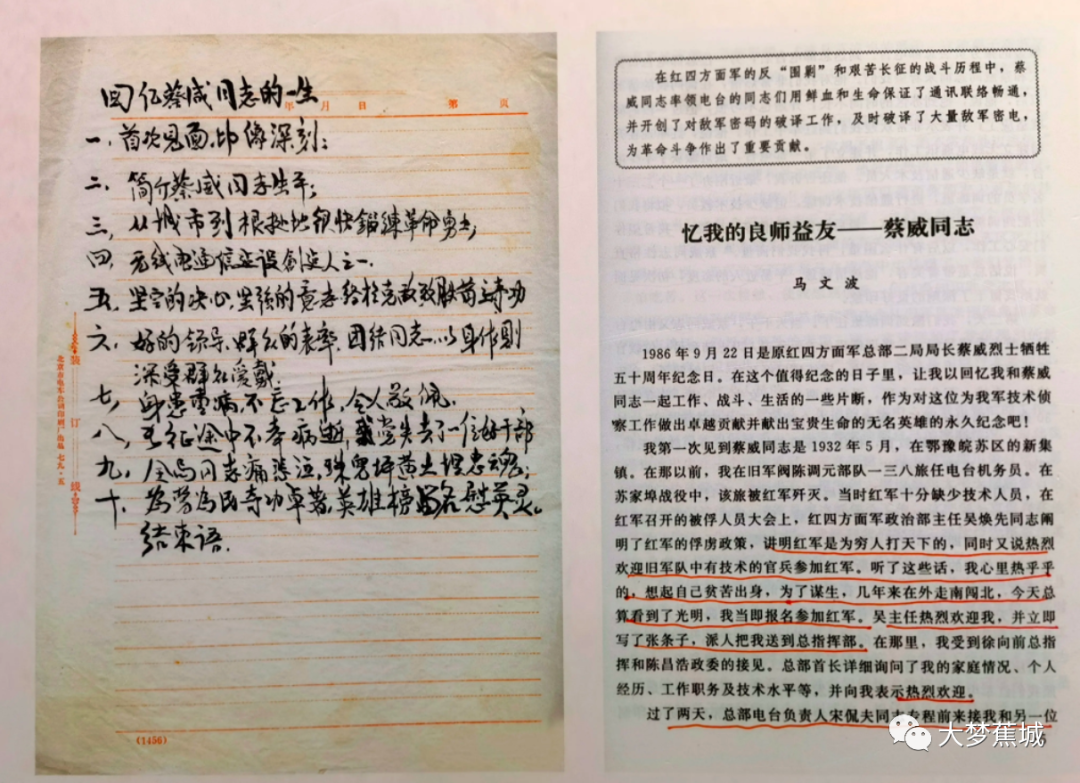 回忆蔡威同志的一生
年 月 日 第 页
一、首次见面、印像深刻;
二、简介蔡威同志生平;
三、从城市到根据地很快锻练革命勇士;
四、无线电通信建设创始人之一.
五、坚定的决心,坚强的意志终于克敌
六、好的领导、群众的表率.团结同志...以身作则
深受群众爱戴.
七、身患重病,不忘工作,令人敬佩.
八、长征途中不幸病逝,我党失去了一位好干部
九、全局同志痛悲泣,黄土埋忠魂;
十、为党为民奇功卓著,英雄榜留名慰英灵。
结束语.
装 订 线
(1456)
在红四方面军的反“围剿”和艰苦长征的战斗历程中,蔡
威同志率领电台的同志们用鲜血和生命保证了通讯联络畅通,
并开创了对敌军密码的破译工作,及时破译了大量敌军密电,
为革命斗争作出了重要贡献。
忆我的良师益友——蔡威同志
马文波
1986年9月22日是原红四方面军总部二局局长蔡威烈士牺牲
五十周年纪念日。在这个值得纪念的日子里,让我以回忆我和蔡威
同志一起工作、战斗、生活的一些片断,作为对这位为我军技术侦
察工作做出卓越贡献并献出宝贵生命的无名英雄的永久纪念吧!
我第一次见到蔡威同志是1932年5月,在鄂豫皖苏区的新集
镇。在那以前,我在旧军阀陈调元部队一三八旅任电台机务员。在
苏家埠战役中,该旅被红军歼灭。当时红军十分缺少技术人员,在
红军召开的被俘人员大会上,红四方面军政治部主任吴焕先同志阐
明了红军的俘虏政策,讲明红军是为穷人打天下的,同时又说热烈
欢迎旧军队中有技术的官兵参加红军。听了这些话,我心里热乎乎
的,想起自己贫苦出身,为了谋生,几年来在外走南闯北,今天总
算看到了光明,我当即报名参加红军。吴主任热烈欢迎我,并立即
写了张条子,派人把我送到总指挥部。在那里,我受到徐向前总指
挥和陈昌浩政委的接见。总部首长详细询问了我的家庭情况、个人
经历、工作职务及技术水平等,并向我表示热烈欢迎。
过了两天,总部电台负责人宋侃夫同志专程前来接我和另一位
大梦蕉城